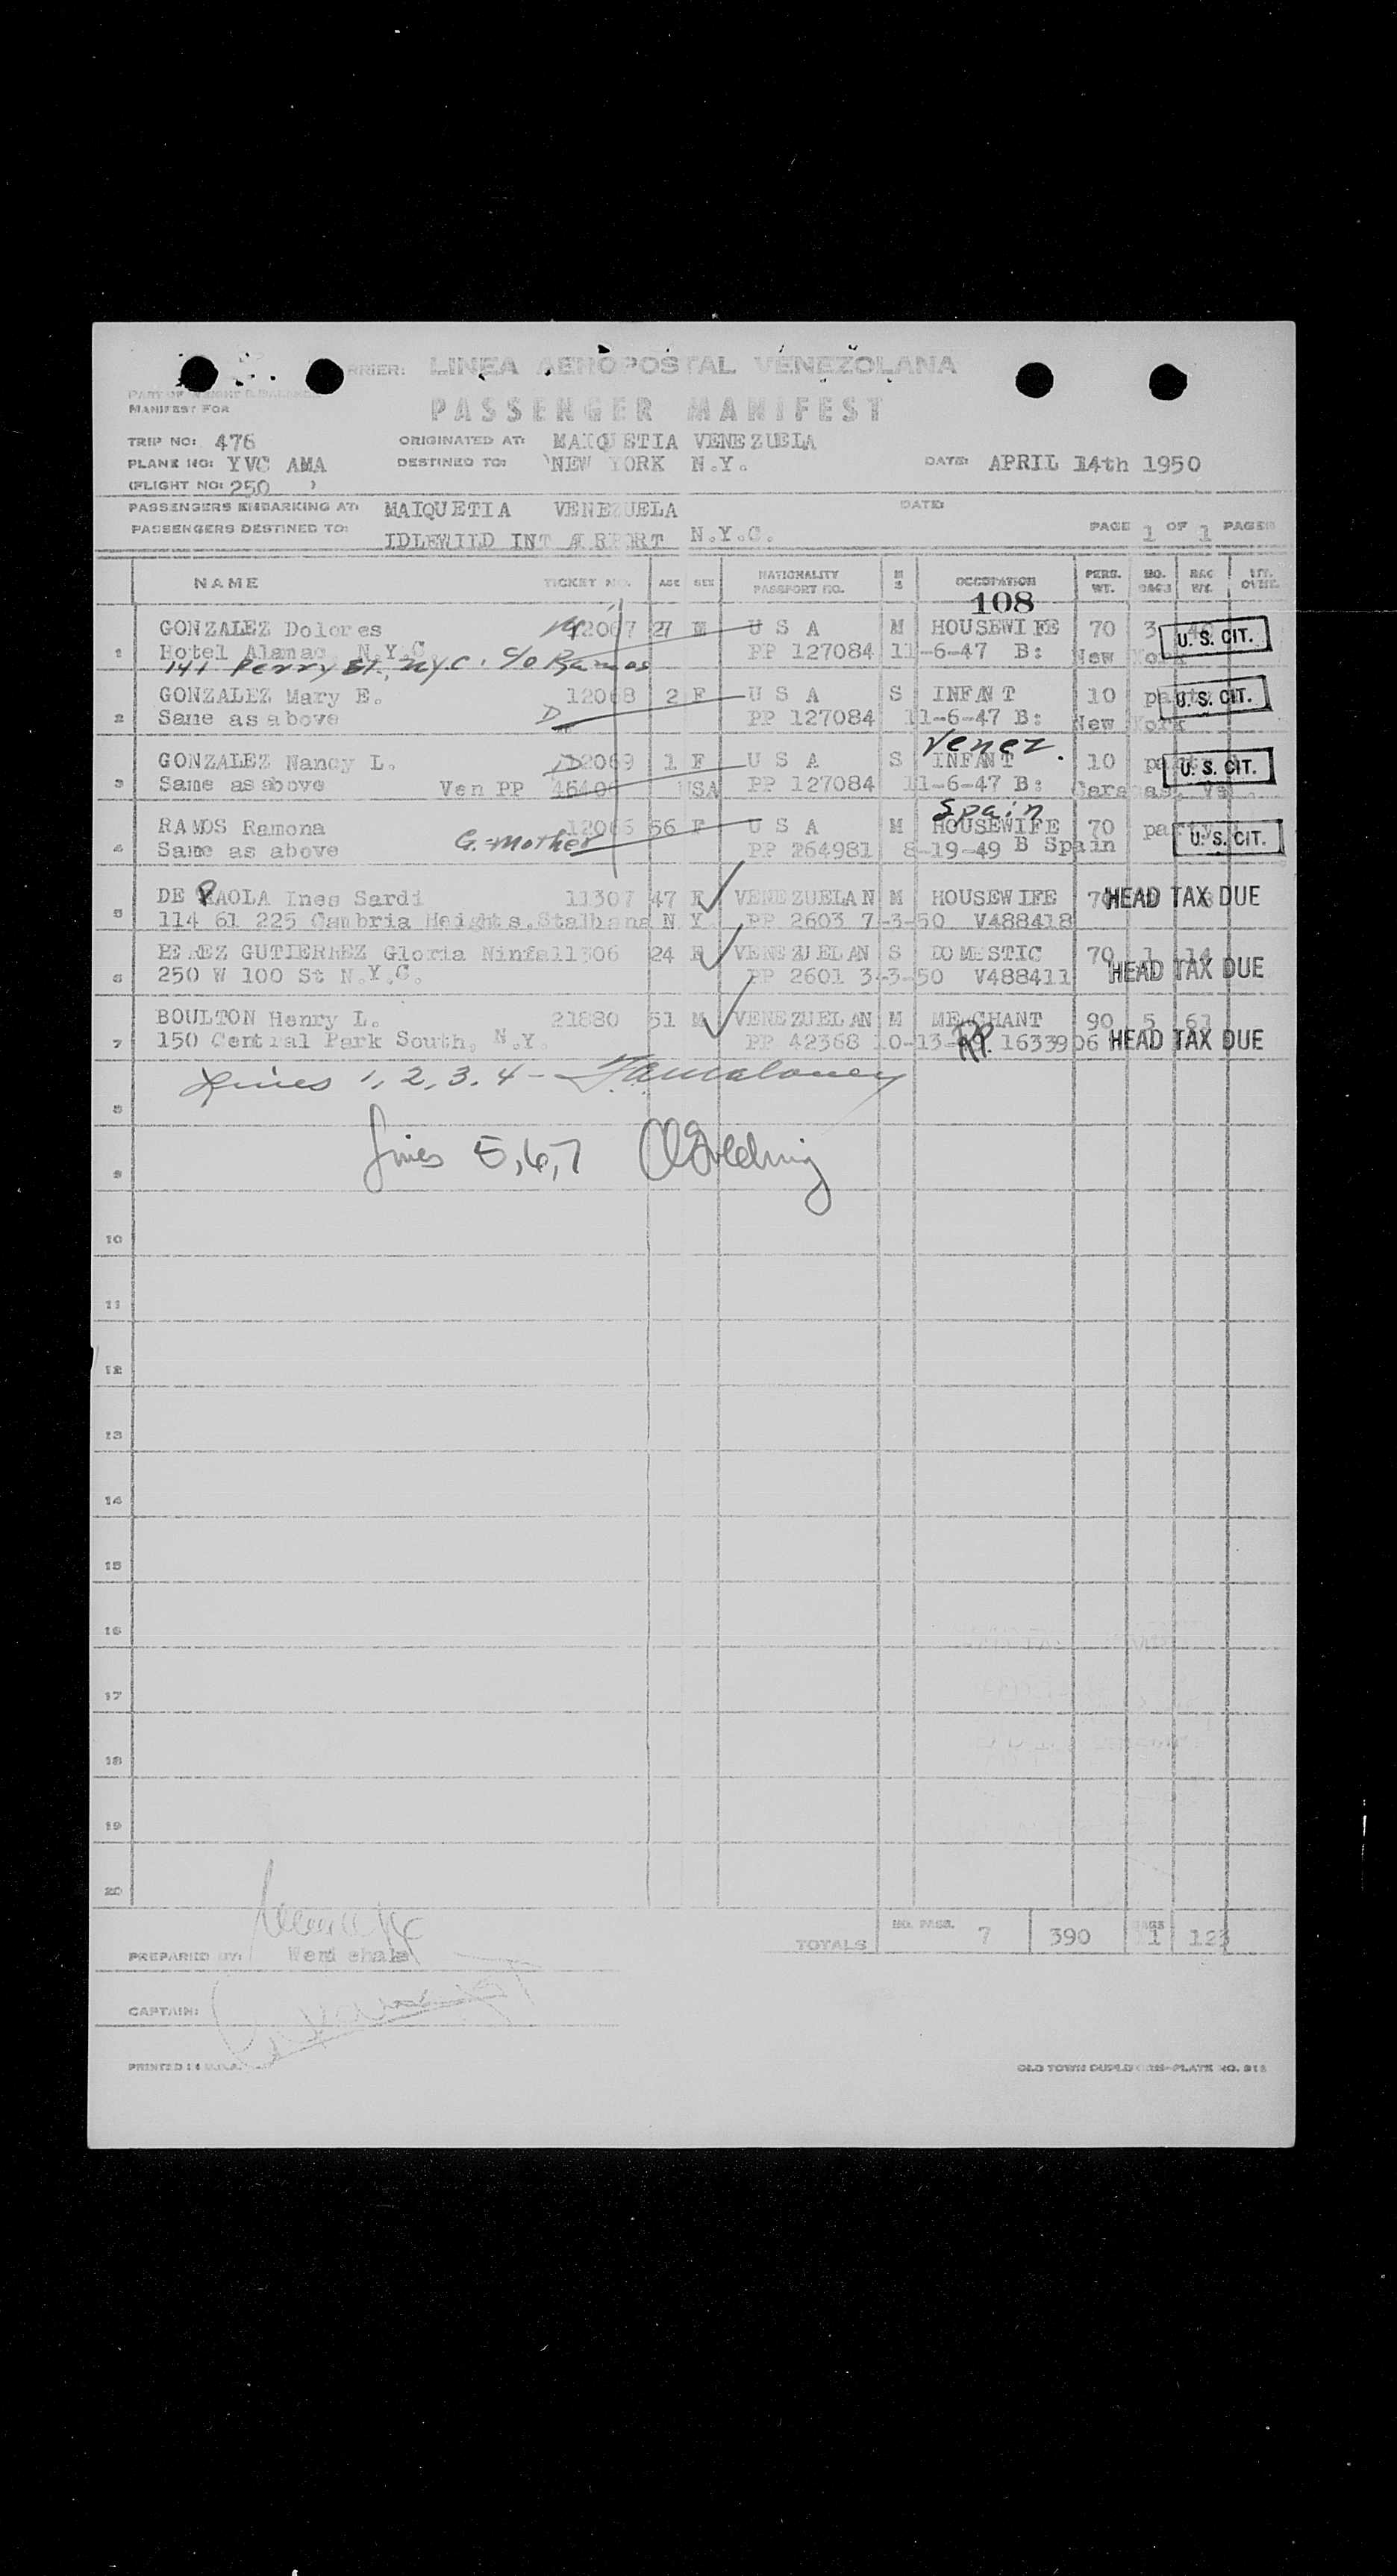 RRIER: LINEA AEROPOSTAL VENEZOLANA
MANIFEST FOR
PASSENGER MANIFEST
TRIP NO: 476 ORIGINATED AT: MAIQUETIA VENEZUELA
PLANE NO: YVC AMA DESTINED TO: NEW YORK N.Y. DATE: APRIL 14th 1950
(FLIGHT NO: 250 )
PASSENGERS EMBARKING AT: MAIQUETIA VENEZUELA DATE:
PASSENGERS DESTINED TO: IDLEWILD INT AIRPORT N.Y.C. PAGE 1 OF 1 PAGES
NAME TICKET NO. AGE SEX NATIONALITY PASSPORT NO. M S OCCUPATION PERS. WT. NO. BAGS BAG WT.
108
GONZALEZ Dolores 12067 27 U S A M HOUSEWIFE 70 3 U. S. CIT.
1 Hotel Alamac N.Y.C. PP 127084 11-6-47 B: New York
141 Perry St. N.Y.C. c/o Ramos
GONZALEZ Mary E. 12068 2 F U S A S INFANT 10 party U. S. CIT.
2 Same as above D PP 127084 11-6-47 B: New York
Venez.
GONZALEZ Nancy L. D 12069 1 F U S A S INFANT 10 party U. S. CIT.
3 Same as above Ven PP 4640 USA PP 127084 11-6-47 B: Caracas, Ve
Spain
RAMOS Ramona 12065 56 F U S A M HOUSEWIFE 70 party U. S. CIT.
4 Same as above G. Mother PP 264981 8-19-49 B Spain
DE PAOLA Ines Sardi 11307 47 F VENEZUELAN M HOUSEWIFE 70 HEAD TAX DUE
5 114 61 225 Cambria Heights.Stalbans N Y PP 2603 7-3-50 V488418
PEREZ GUTIERREZ Gloria Ninfa11306 24 F VENEZUELAN S DOMESTIC 70 1 14
6 250 W 100 St N.Y.C. PP 2601 3-3-50 V488411 HEAD TAX DUE
BOULTON Henry L. 21880 51 M VENEZUELAN M MERCHANT 90 5 61
7 150 Central Park South, N.Y. PP 42368 10-13- RP. 1633906 HEAD TAX DUE
Lines 1, 2, 3, 4 -
8
Lines 5,6,7
9
10
11
12
13
14
15
16
17
18
19
20
TOTALS NO. PASS. 7 390 BAGS 11 123
PREPARED BY:
CAPTAIN:
PRINTED IN U.S.A. PLATE NO. 918